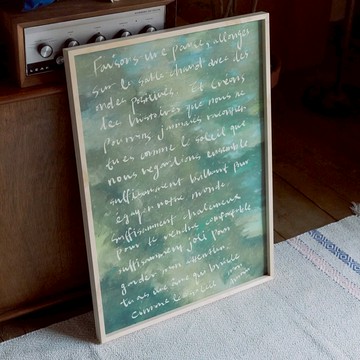 Faisons une pause, allongés
sur le sable chaud avec des
ondes positives. Et créons
des histoires que nous ne
pourrons jamais raconter.
tu es comme le soleil que
nous regardions ensemble
suffisamment brillant pour
égayer notre monde
suffisamment chaleureux
pour te rendre confortable
suffisamment joli pour
garder mon attention
tu as une âme qui brille
comme le soleil